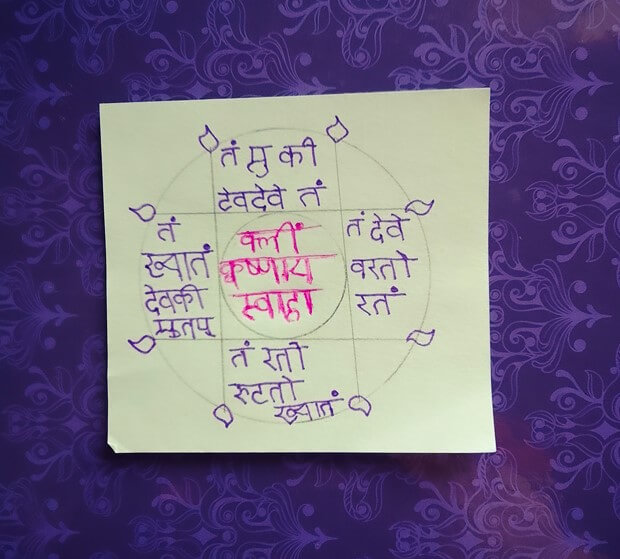 तं मु की
देवदेवे तं
तं
ख्यातं
देवकी
मुतप्
क्लीं
कृष्णाय
स्वाहा
तं देवे
वरतो
रतं
तं रतो
रुटतो
ख्यातं